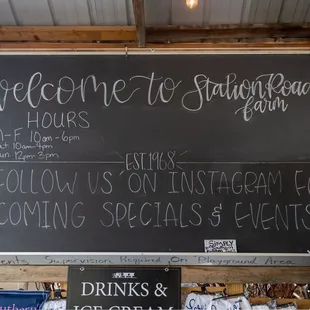 Welcome to Station Road
farm
HOURS
M-F 10am-6pm
Sat 10am-4pm
Sun 12pm-3pm
EST. 1968
FOLLOW US ON INSTAGRAM FO
COMING SPECIALS & EVENTS
SIMPLY
Supervision Required on Playground Area
DRINKS &
ICE CREAM